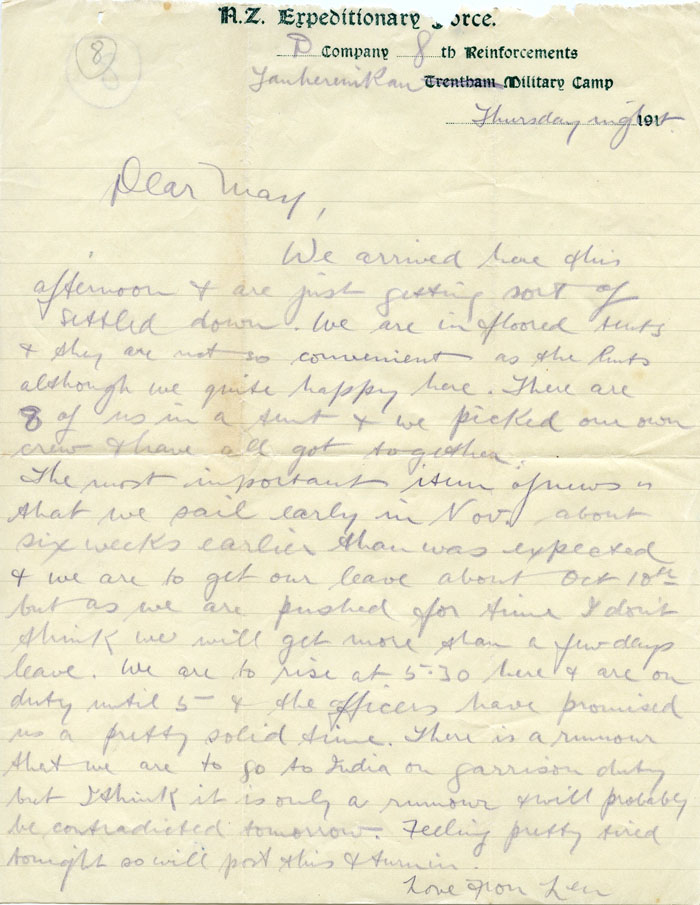 8
N.Z. Expeditionary Force.
D Company 8 th Reinforcements
Tauherenikau Trentham Military Camp
Thursday night 191
Dear May,
We arrived here this
afternoon & are just getting sort of
settled down. We are in floored tents
& they are not so convenient as the huts
although we quite happy here. There are
8 of us in a tent & we picked our own
crew & have all got together.
The most important item of news is
that we sail early in Nov. about
six weeks earlier than was expected
& we are to get our leave about Oct 10th
but as we are pushed for time I don't
think we will get more than a few days
leave. We are to rise at 5.30 here & are on
duty until 5 & the officers have promised
us a pretty solid time. There is a rumour
that we are to go to India on garrison duty
but I think it is only a rumour & will probably
be contradicted tomorrow. Feeling pretty tired
tonight so will post this & turn in.
Love from Len